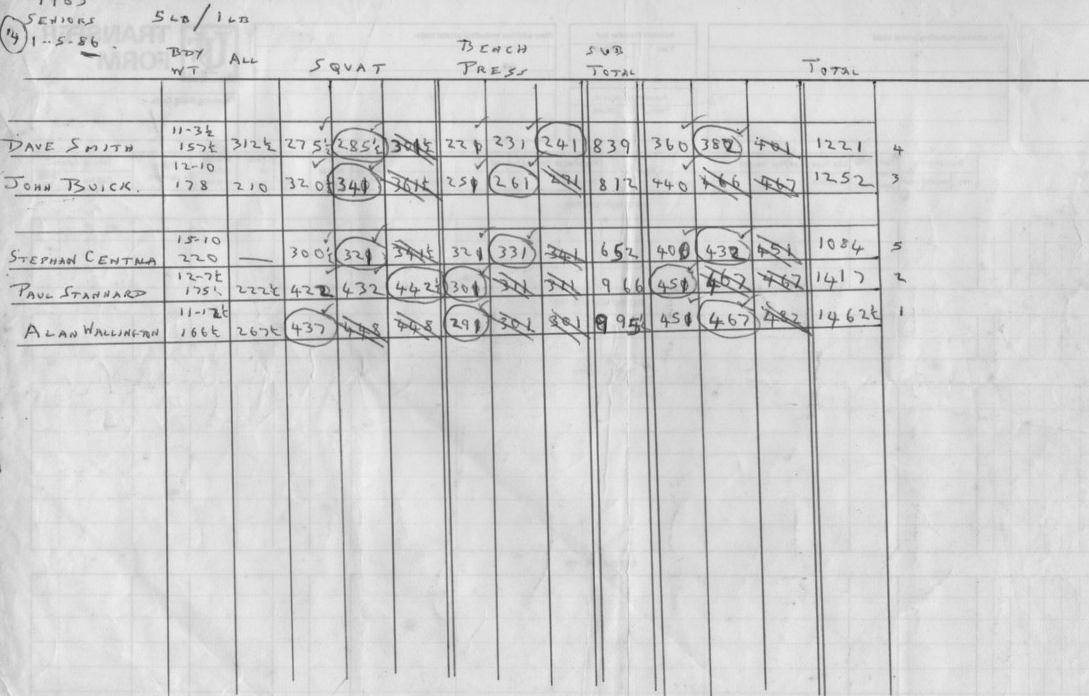 SENIORS 5 LB / 1 LB
14 1-5-86
BDY WT ALL SQUAT BENCH PRESS SUB TOTAL TOTAL
11-3½
DAVE SMITH 157½ 312½ 275½ 285½ 301½ 221 231 241 839 360 382 401 1221 4
12-10
JOHN BUICK. 178 210 320½ 341 361½ 251 261 271 812 440 466 467 1252 3
15-10
STEPHAN CENTALA 220 — 300½ 321 341½ 321 331 341 652 401 432 451 1084 5
12-7½
PAUL STANNARD 175½ 222½ 422 432 442½ 301 311 311 966 451 467 467 1417 2
11-12½
ALAN WALLINGTON 166½ 267½ 437 448 448 291 301 301 995½ 451 467 482 1462½ 1